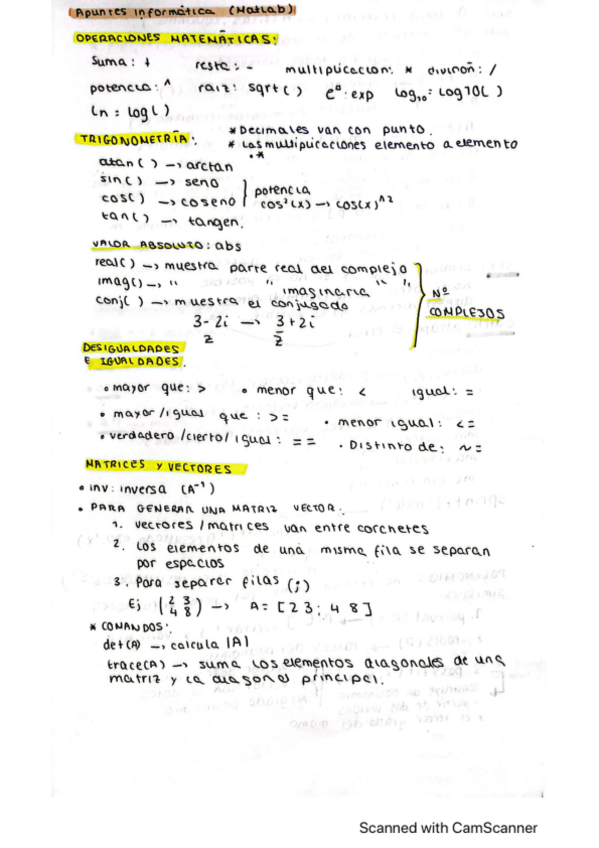 Apuntes informática (Matlab)
OPERACIONES MATEMÁTICAS:
Suma: + resta: - multiplicacion: * diviroñ: /
potencia: ^ raiz: sqrt() eº: exp log₁₀: log10( )
ln = log( )
TRIGONOMETRÍA: * Decimales van con punto.
* Las multiplicaciones elemento a elemento
.*
atan( ) → arctan
sin( ) → seno
cos( ) → coseno
tan( ) → tangen.
potencia
cos²(x) → cos(x)^2
VALOR ABSOLUTO: abs
real( ) → muestra parte real del complejo
imag( ) → " " imaginaria " "
conj( ) → muestra el conjugado
3-2i → 3+2i
z z̄
Nº
COMPLEJOS
DESIGUALDADES
E IGUALDADES.
• mayor que: > • menor que: < igual: =
• mayor/igual que: >= • menor igual: <=
• verdadero/cierto/igual: == • Distinto de: ~=
MATRICES Y VECTORES
• inv: inversa (A⁻¹)
• PARA GENERAR UNA MATRIZ VECTOR:
1. vectores/matrices van entre corchetes
2. Los elementos de una misma fila se separan
por espacios
3. Para separar filas (;)
Ej (2 3
4 8) → A = [2 3; 4 8]
* COMANDOS:
det(A) → calcula |A|
trace(A) → suma los elementos diagonales de una
matriz y la diagonal principal.
Scanned with CamScanner